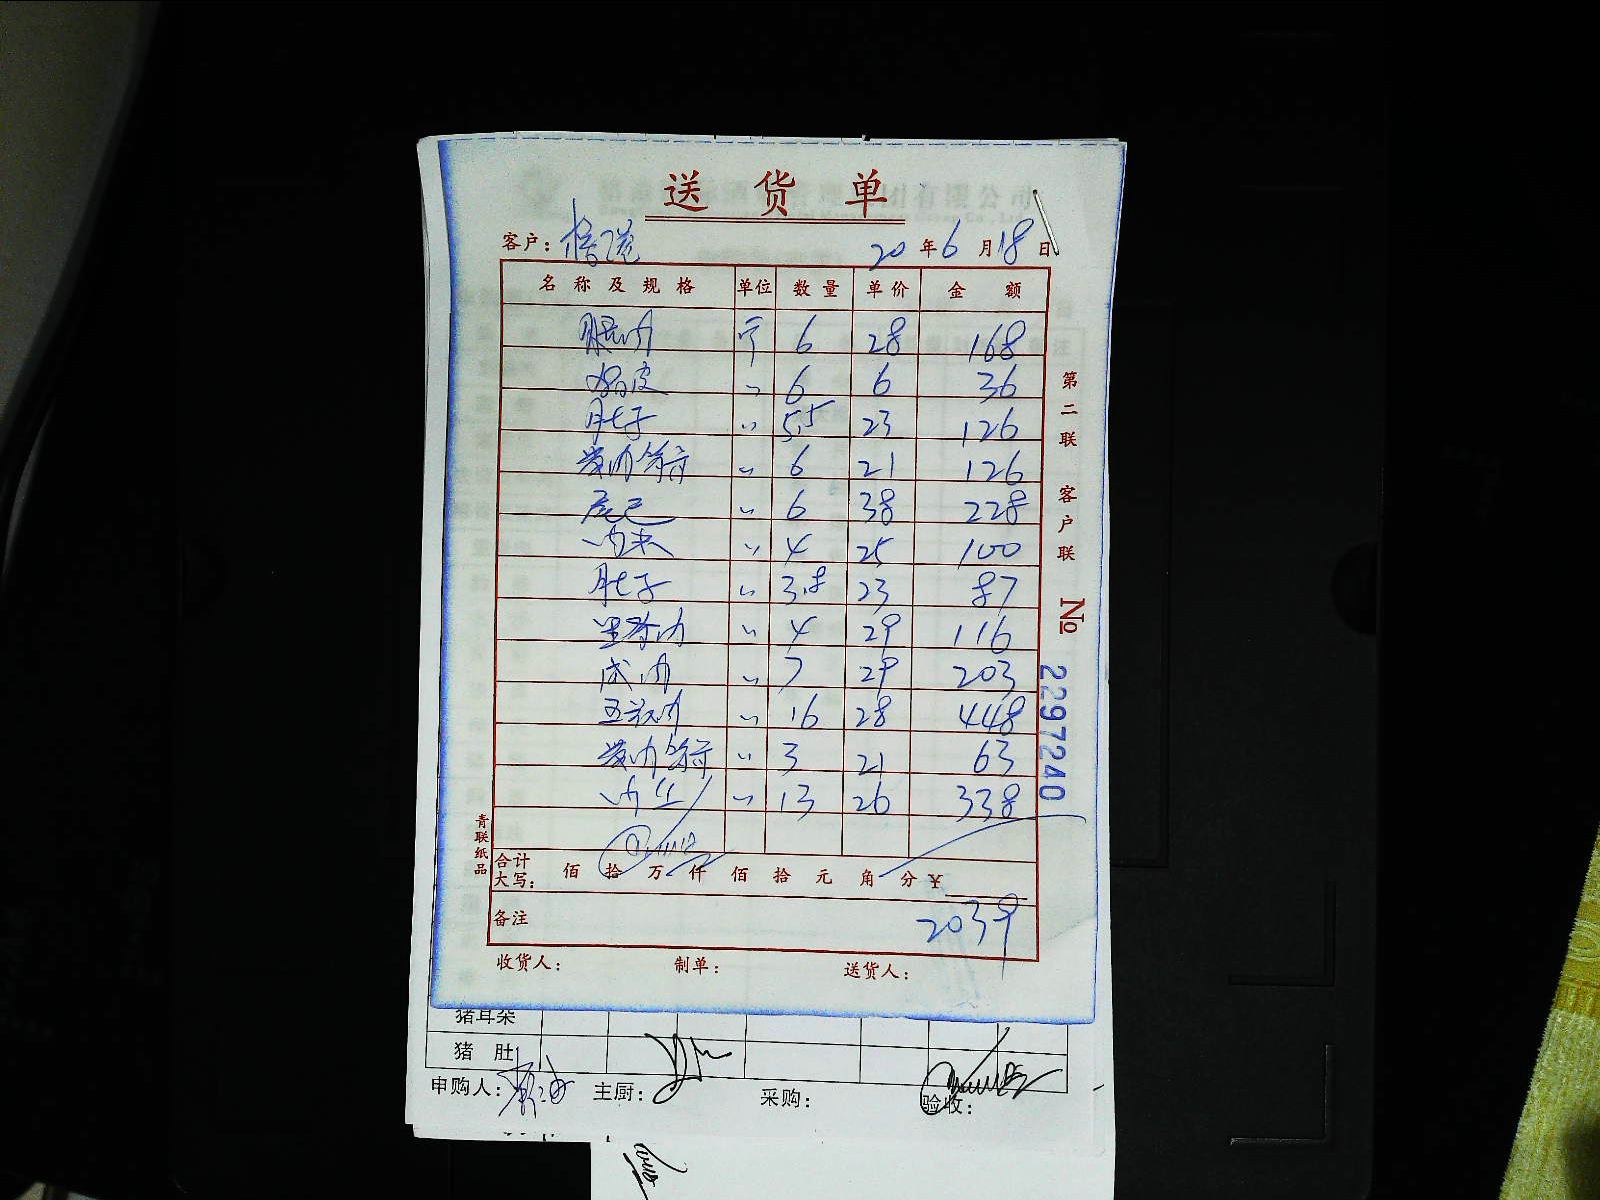 送货单
客户： 20年6月18日
名称及规格 单位 数量 单价 金额
腿肉 斤 6 28 168
皮 〃 6 6 36
肚子 〃 5.5 23 126
肉 〃 6 21 126
尾巴 〃 6 38 228
肉末 〃 4 25 100
肚子 〃 3.8 23 87
里脊肉 〃 4 29 116
肉 〃 7 29 203
五花肉 〃 16 28 448
肉 〃 3 21 63
肉丝 〃 13 26 338
合计大写： 佰 拾 万 仟 佰 拾 元 角 分 ¥
备注 2039
收货人： 制单： 送货人：
第二联 客户联
№ 2297240
青联纸品
猪耳朵
猪肚
申购人： 主厨： 采购： 验收：